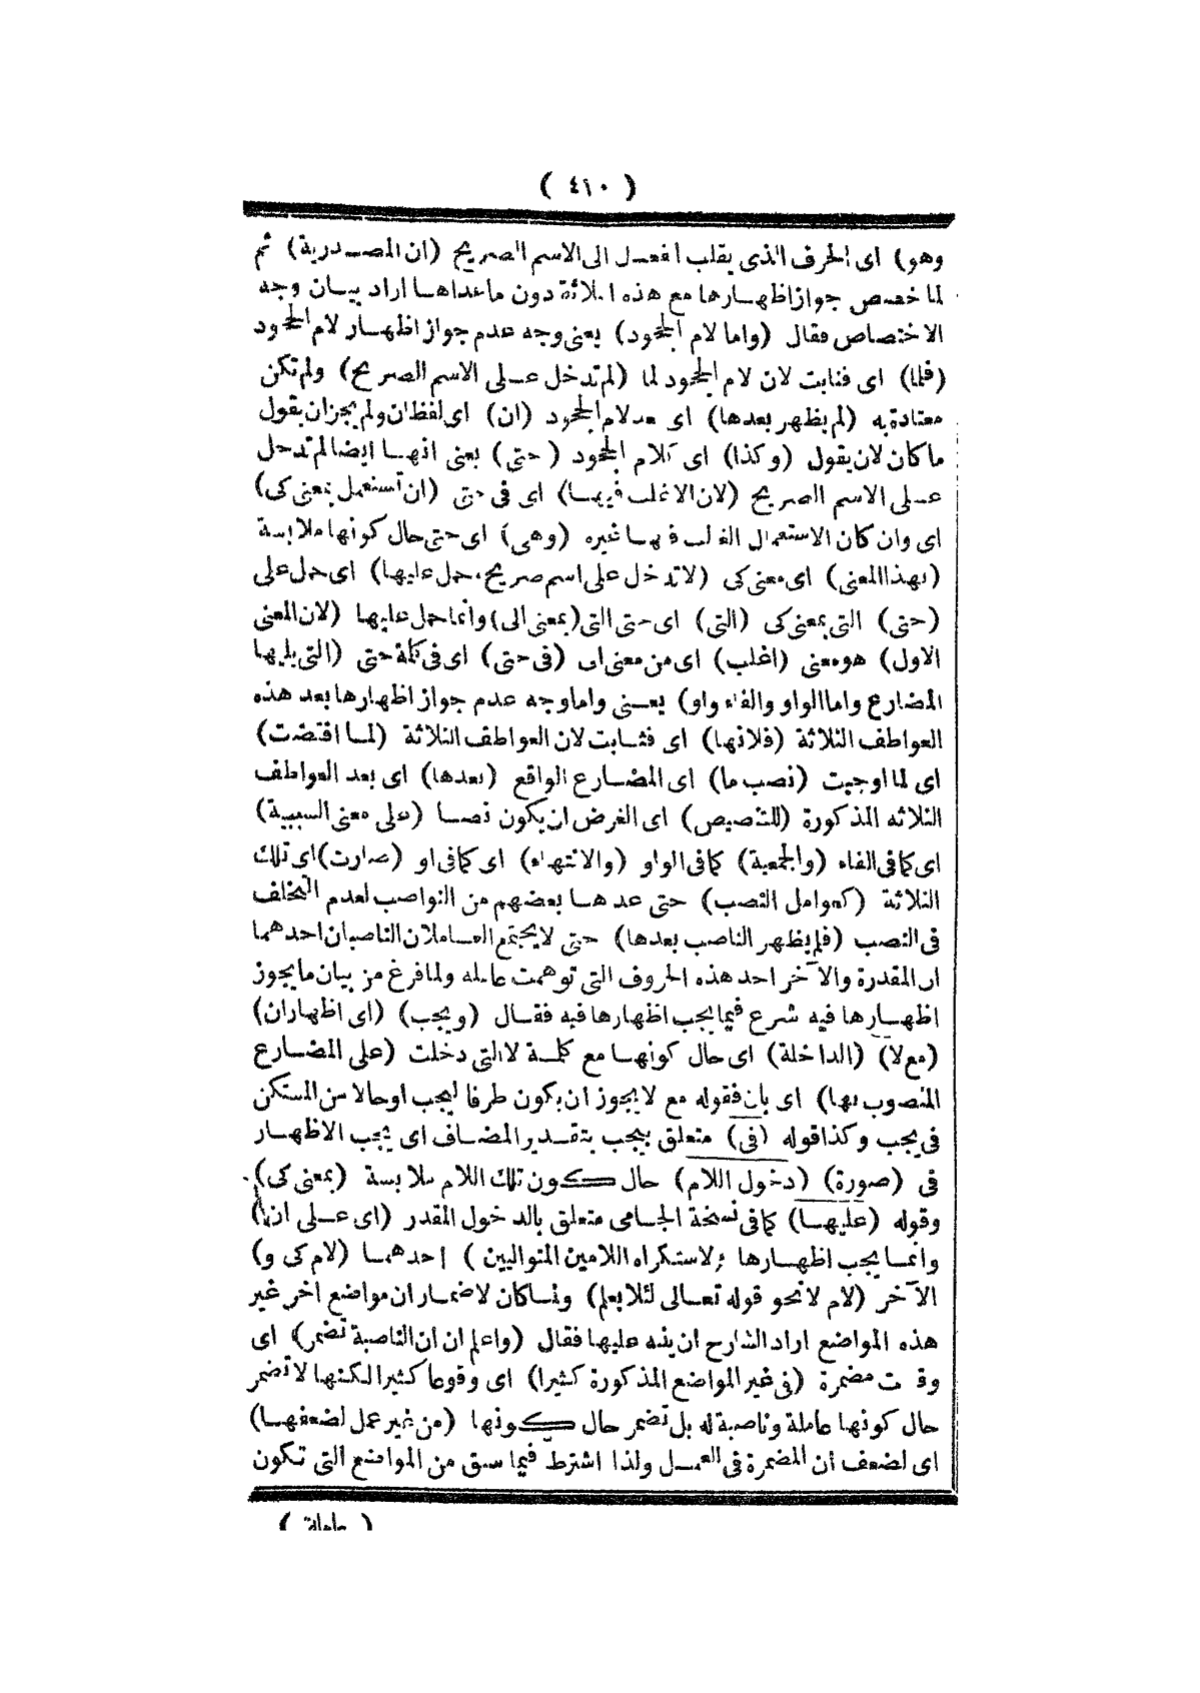 ( ٤١٠ )
وهو) اى الحرف الذى يقلب الفعل الى الاسم الصريح (ان المصدرية) ثم
لما خصص جواز اظهارها مع هذه الثلاثة دون ماعداها اراد بيان وجه
الاختصاص فقال (واما لام الجحود) يعنى وجه عدم جواز اظهار لام الجحود
(فلما) اى فثابت لان لام الجحود لما (لم تدخل على الاسم الصريح) ولم تكن
معتادة به (لم يظهر بعدها) اى بعد لام الجحود (ان) اى لفظ ان ولم يجز ان يقول
ما كان لان يقول (وكذا) اى كلام الجحود (حتى) يعنى انها ايضا لم تدخل
على الاسم الصريح (لان الاغلب فيها) اى فى حتى (ان تستعمل بمعنى كى)
اى وان كان الاستعمال الغالب فيها غيره (وهى) اى حتى حال كونها ملابسة
(بهذا المعنى) اى معنى كى (لا تدخل على اسم صريح، حمل عليها) اى حمل على
(حتى) التى بمعنى كى (التى) اى حتى التى (بمعنى الى) وانما حمل عليها (لان المعنى
الاول) هو معنى (اغلب) اى من معنى الى (فى حتى) اى فى كلمة حتى (التى يليها
المضارع واما الواو والفاء واو) يعنى واما وجه عدم جواز اظهارها بعد هذه
العواطف الثلاثة (فلانها) اى فثابت لان العواطف الثلاثة (لما اقتضت)
اى لما اوجبت (نصب ما) اى المضارع الواقع (بعدها) اى بعد العواطف
الثلاثه المذكورة (للتنصيص) اى الغرض ان يكون نصا (على معنى السببية)
اى كما فى الفاء (والجمعية) كما فى الواو (والانتهاء) اى كما فى او (صارت) اى تلك
الثلاثة (كعوامل النصب) حتى عدها بعضهم من النواصب لعدم التخلف
فى النصب (فلم يظهر الناصب بعدها) حتى لا يجتمع العاملان الناصبان احدهما
ان المقدرة والآخر احد هذه الحروف التى توهمت عامله ولما فرغ من بيان ما يجوز
اظهارها فيه شرع فيما يجب اظهارها فيه فقال (ويجب) (اى اظهار ان)
(مع لا) (الداخلة) اى حال كونها مع كلمة لا التى دخلت (على المضارع
المنصوب بها) اى بان فقوله مع لا يجوز ان يكون ظرفا ليجب او حالا من المستكن
فى يجب وكذا قوله (فى) متعلق بيجب بتقدير المضاف اى يجب الاظهار
فى (صورة) (دخول اللام) حال كون تلك اللام ملابسة (بمعنى كى)
وقوله (عليها) كما فى نسخة الجامى متعلق بالدخول المقدر (اى على ان)
وانما يجب اظهارها (لاستكراه اللامين المتواليين) احدهما (لام كى و)
الآخر (لام لا نحو قوله تعالى لئلا يعلم) ولما كان لاضمار ان مواضع اخر غير
هذه المواضع اراد الشارح ان ينبه عليها فقال (واعلم ان ان الناصبة تضمر) اى
وقعت مضمرة (فى غير المواضع المذكورة كثيرا) اى وقوعا كثيرا لكنها لا تضمر
حال كونها عاملة وناصبة له بل تضمر حال كونها (من غير عمل لضعفها)
اى لضعف ان المضمرة فى العمل ولذا اشترط فيما سبق من المواضع التى تكون
( عاملة )